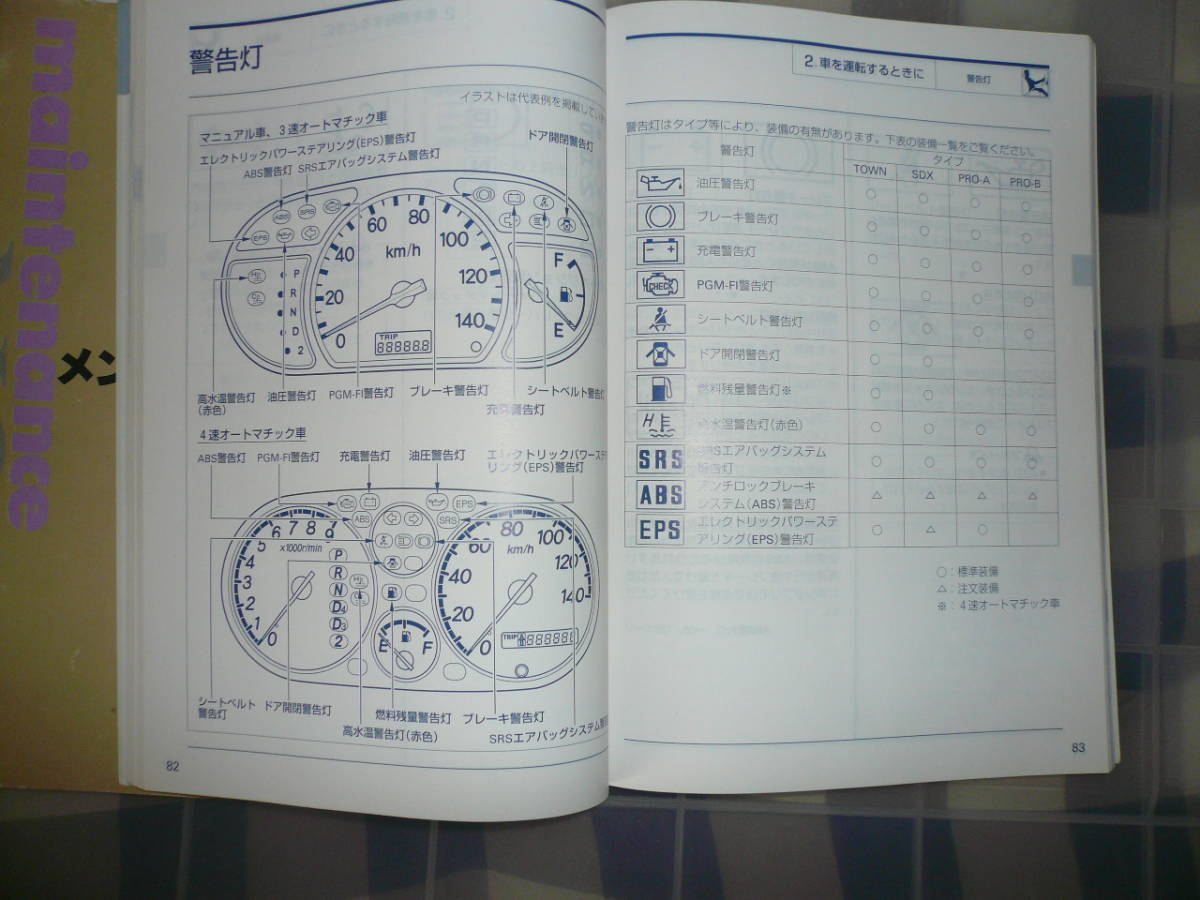 maintenance
メン
警告灯
イラストは代表例を掲載してい
マニュアル車、3速オートマチック車
エレクトリックパワーステアリング(EPS)警告灯
ABS警告灯 SRSエアバッグシステム警告灯
ドア開閉警告灯
ABS SRS
EPS
P
R
N
D
2
0 20 40 60 80 100 120 140
km/h
TRIP
88888.8
F
E
高水温警告灯
(赤色)
油圧警告灯 PGM-FI警告灯 ブレーキ警告灯
充電警告灯
シートベルト警告灯
4速オートマチック車
ABS警告灯 PGM-FI警告灯 充電警告灯 油圧警告灯
エレクトリックパワーステ
リング(EPS)警告灯
EPS
ABS SRS
0 1 2 3 4 5 6 7 8 9
x1000r/min
P
R
N
D4
D3
2
E F
0 20 40 60 80 100 120 140
km/h
TRIP
シートベルト
警告灯
ドア開閉警告灯
高水温警告灯(赤色)
燃料残量警告灯 ブレーキ警告灯
SRSエアバッグシステム
82
2.車を運転するときに 警告灯
警告灯はタイプ等により、装備の有無があります。下表の装備一覧をご覧ください。
警告灯 タイプ
TOWN SDX PRO-A PRO-B
油圧警告灯 ○ ○ ○ ○
ブレーキ警告灯 ○ ○ ○ ○
充電警告灯 ○ ○ ○ ○
CHECK PGM-FI警告灯 ○ ○ ○ ○
シートベルト警告灯 ○ ○ ○ ○
ドア開閉警告灯 ○ ○
燃料残量警告灯※ ○ ○
H 高水温警告灯(赤色) ○ ○ ○ ○
SRS SRSエアバッグシステム
警告灯 ○ ○ ○ ○
ABS アンチロックブレーキ
システム(ABS)警告灯 △ △ △ △
EPS エレクトリックパワーステ
アリング(EPS)警告灯 ○ △ ○
○：標準装備
△：注文装備
※：4速オートマチック車
83